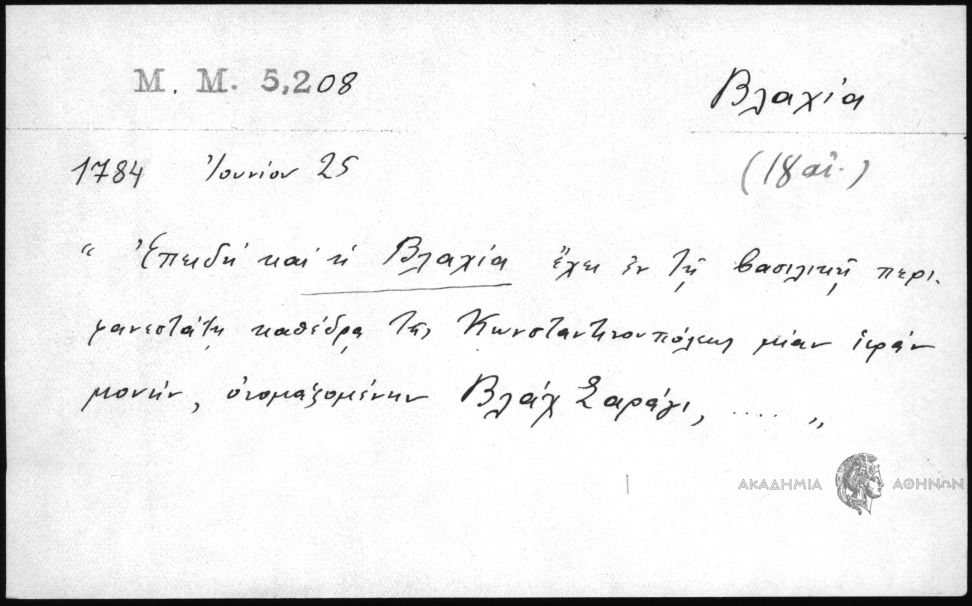 M. M. 5,208
Βλαχία
1784 Ἰουνίου 25
(18 αἰ.)
“ Ἐπειδὴ καὶ ἡ Βλαχία ἔχει ἐν τῇ βασιλικῇ περι-
φανεστάτῃ καθέδρᾳ τῆς Κωνσταντινουπόλεως μίαν ἱερὰν
μονήν, ὀνομαζομένην Βλὰχ Σαράγι, .... „
ΑΚΑΔΗΜΙΑ ΑΘΗΝΩΝ